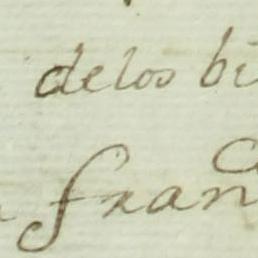 de los bi
fran